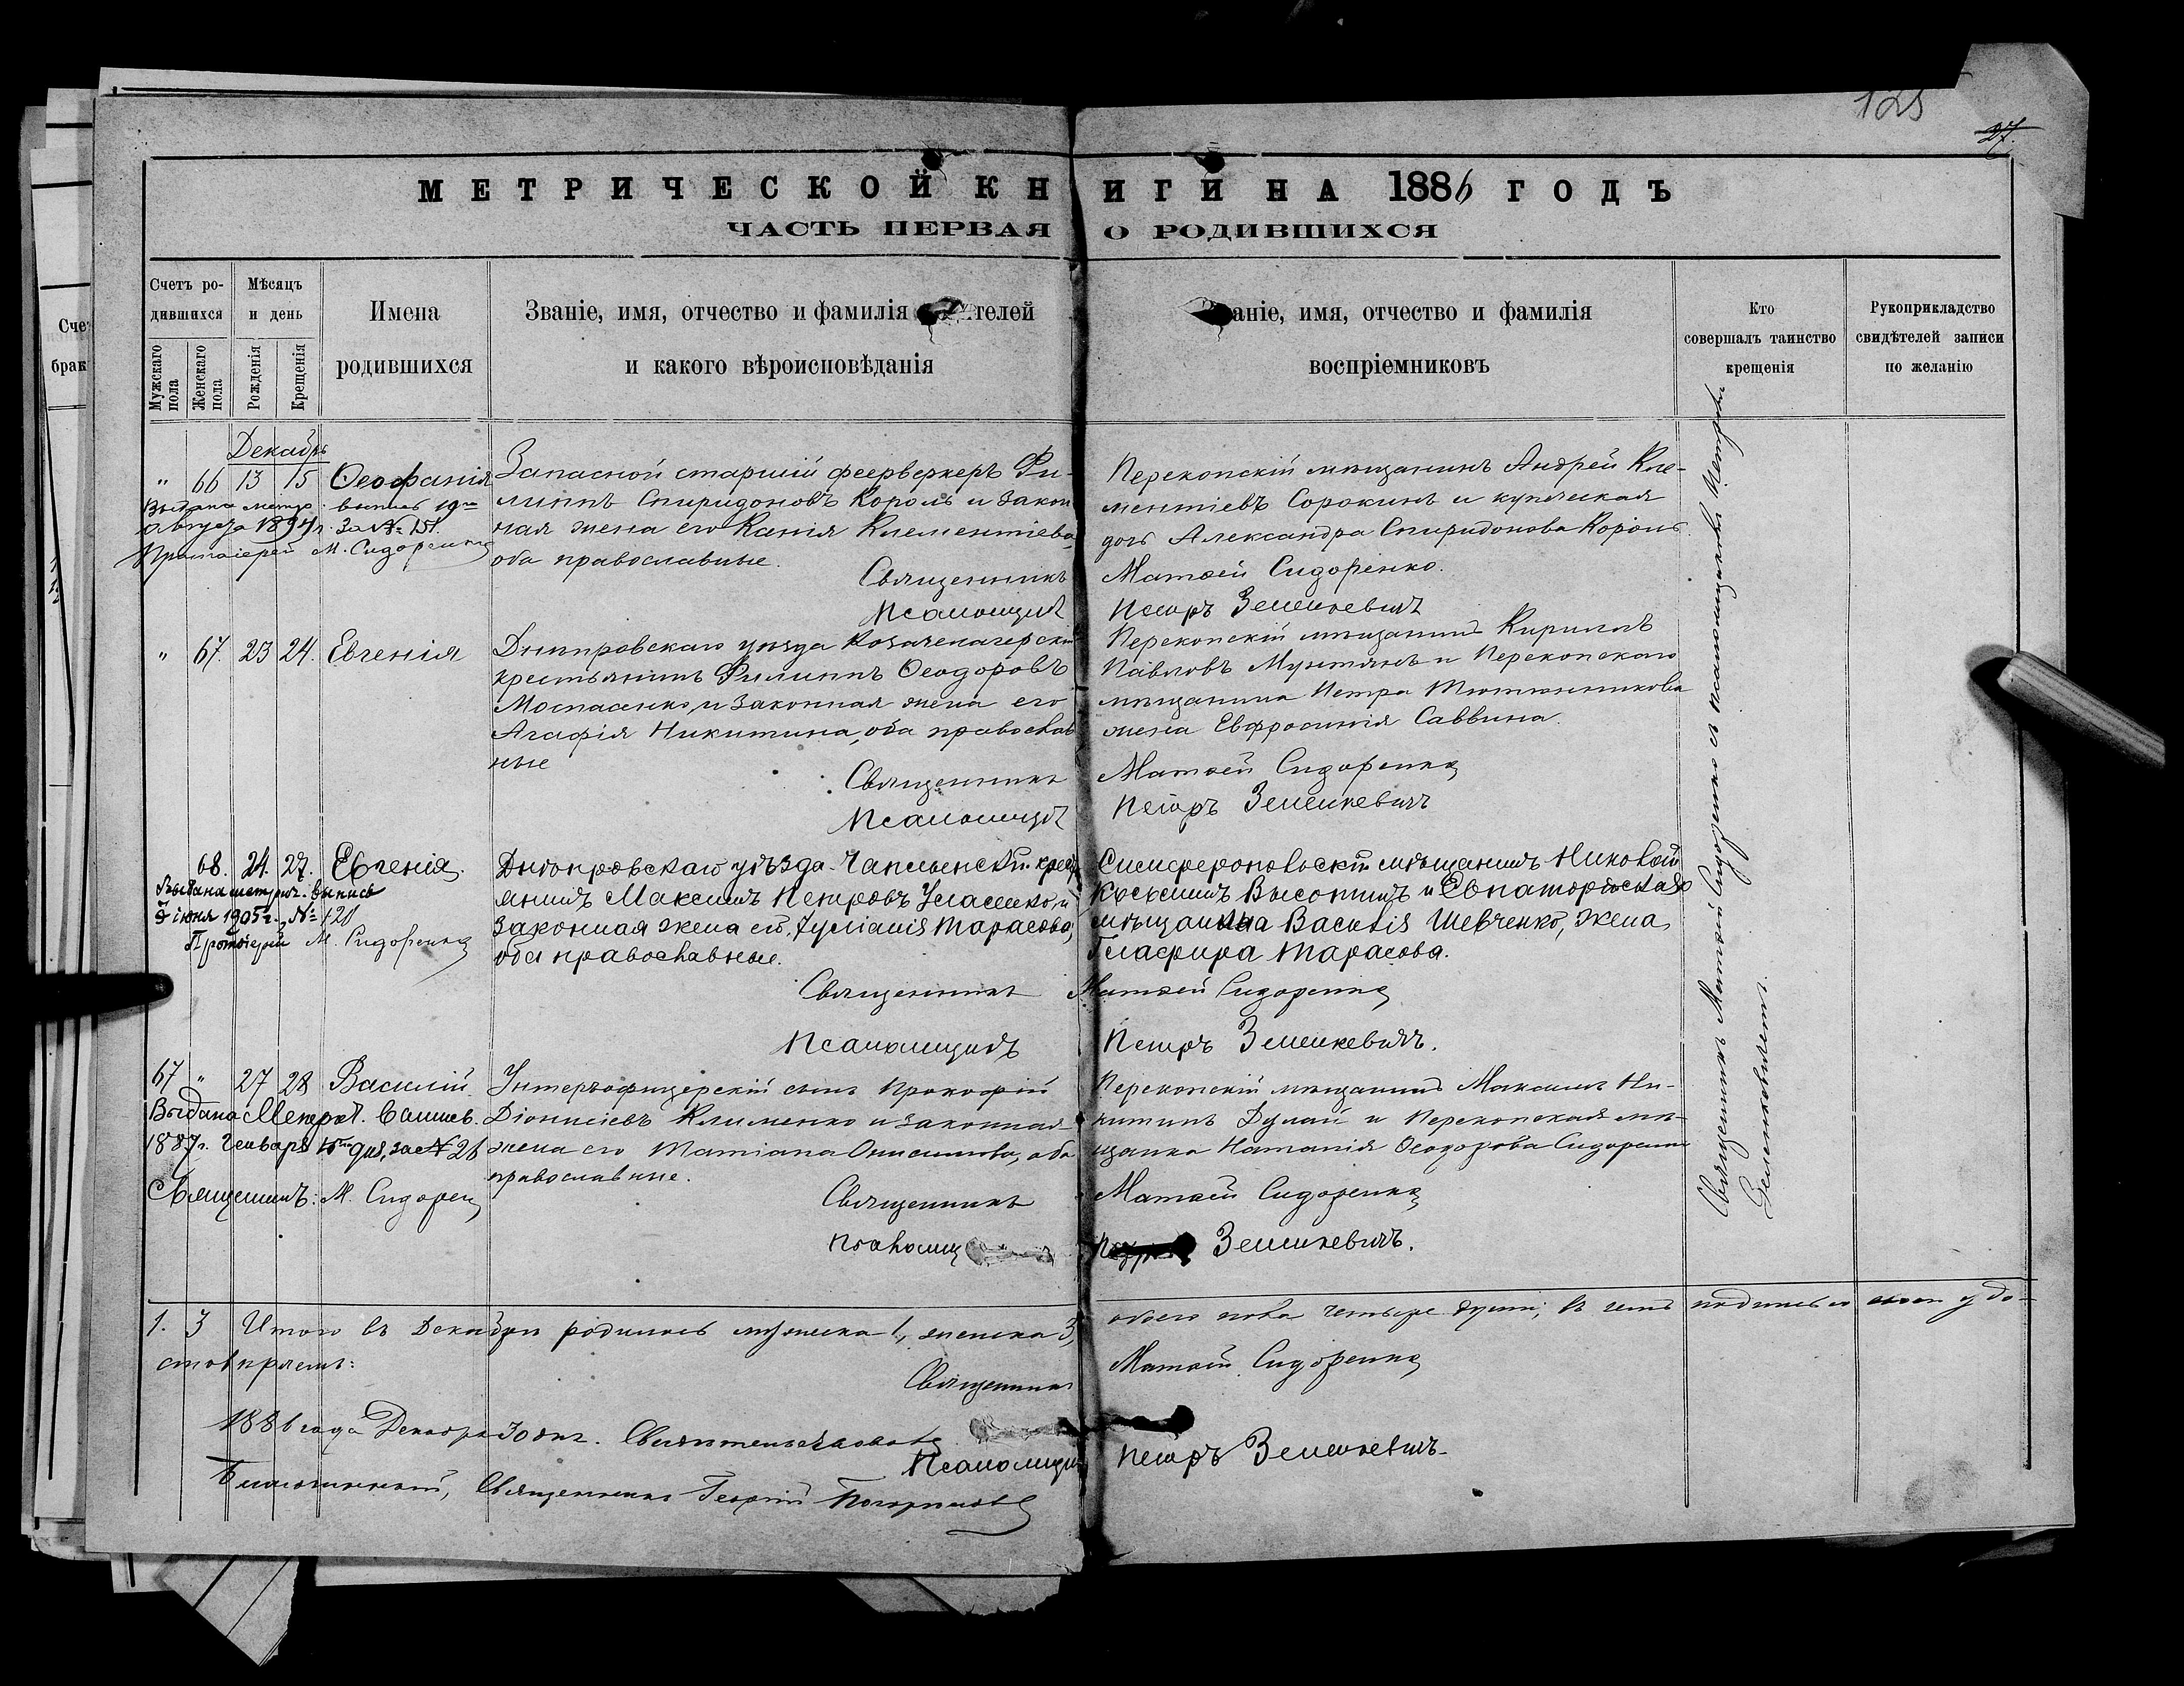 125
27.
МЕТРИЧЕСКОЙ КНИГИ НА 1886 ГОДЪ
ЧАСТЬ ПЕРВАЯ О РОДИВШИХСЯ
Счетъ ро-
дившихся
Мужскаго пола
Женскаго пола
Мѣсяцъ
и день
Рожденія
Крещенія
Имена
родившихся
Званіе, имя, отчество и фамилія телей
и какого вѣроисповѣданія
аніе, имя, отчество и фамилія
воспріемниковъ
Кто
совершалъ таинство
крещенія
Рукоприкладство
свидѣтелей записи
по желанію
Сче
брак
Декабрь
" 66 13 15 Ѳеофанія
Выдана метр. выпись 19го
августа 1894 г. За № 151.
Протоіерей М. Сидоренко
Запасной старшій феерверкеръ Фи-
липпъ Спиридоновъ Король и закон
ная жена его Ксенія Клементіева,
оба православные.
Священникъ
Псаломщикъ
Перекопскій мѣщанинъ Андрей Кле-
ментіевъ Сорокинъ и купеческая
дочь Александра Спиридонова Король.
Матѳей Сидоренко.
Петръ Земенкевичъ
" 67. 23 24. Евгенія
Днѣпровскаго уѣзда Козачелагерскій
крестьянинъ Филиппъ Ѳеодоровъ
Моспаненко, и законная жена его
Агафія Никитина, оба православ
ные
Священникъ
Псаломщикъ
Перекопскій мѣщанинъ Кириллъ
Павловъ Мунтянъ и Перекопскаго
мѣщанина Петра Тютюнникова
жена Евфросинія Саввина.
Матѳей Сидоренко
Петръ Земенкевичъ
68. 24. 27. Евгенія.
Выдана метрич. выпись
5 іюня 1905 г. № 121
Протоіерей М. Сидоренко
Днѣпровскаго уѣзда Чаплынскій крест
янинъ Максимъ Петровъ Усасенко, и
законная жена его, Іуліанія Тарасова,
оба православные.
Священникъ
Псаломщикъ
Симферопольскій мѣщанинъ Николай
Высоцинъ и Евпаторійскаго
мѣщанина Василія Шевченко, жена
Глафира Тарасова.
Матѳей Сидоренко
Петръ Земенкевичъ.
67 " 27 28 Василій
Выдана Метрич. Выпись.
1887 г. Генваря 15го дня, за № 26
Священникъ: М. Сидоренко
Унтеръофицерскій сынъ Прокофій
Діонисіевъ Клименко и законная
жена его Татіана Онисимова, оба
православные.
Священникъ
Псаломщ
Перекопскій мѣщанинъ Максимъ Ни-
китинъ Дулай и Перекопская мѣ-
щанка Наталія Ѳеодорова Сидоренко
Матѳей Сидоренко
Петръ Земенкевичъ.
Священникъ Матѳей Сидоренко съ псаломщикомъ Петромъ
Земенкевичемъ.
1. 3 Итого въ Декабрѣ родилось мужеска 1, женска 3,
обоего пола четыре души; въ чемъ подписью своею удо-
стовѣряемъ:
Священникъ
Матѳей Сидоренко
1886 года Декабря 30 дня. Свидѣтельствовалъ
Псаломщикъ
Петръ Земенкевичъ.
Благочинный, Священникъ Георгій